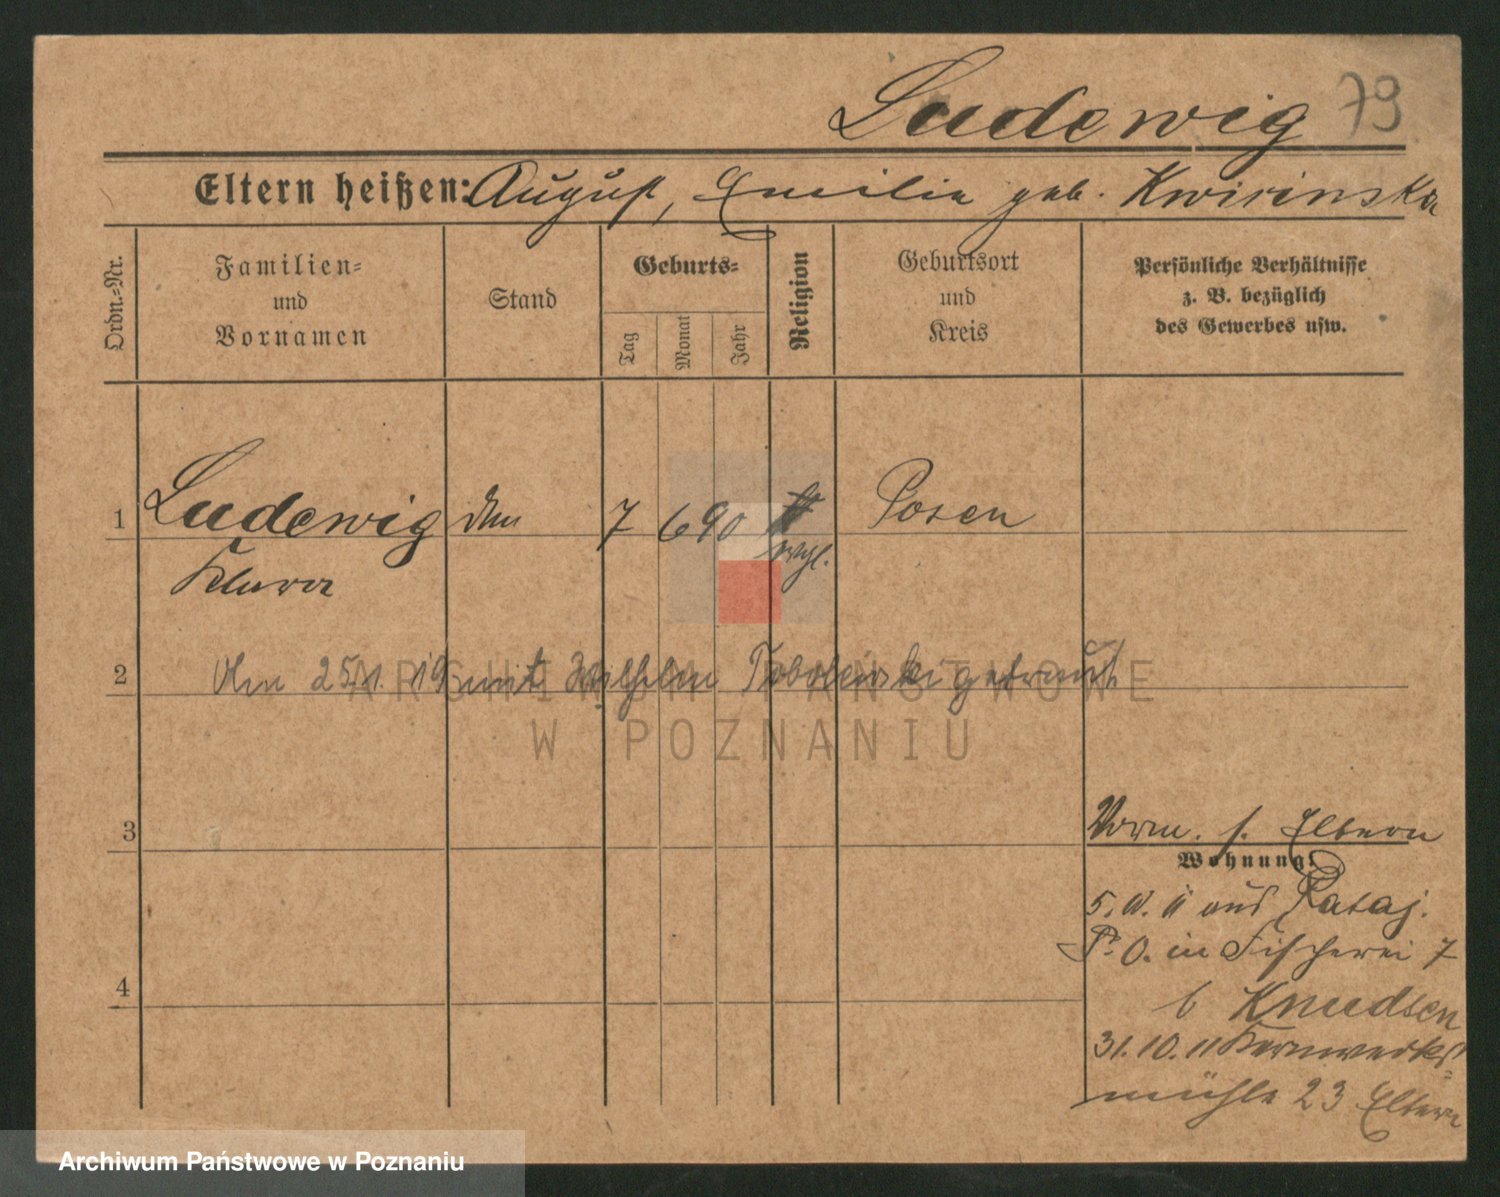 Ludewig 79
Eltern heißen: August, Emilie geb. Kwirinska
Ordn.=Nr.
Familien=
und
Vornamen
Stand
Geburts=
Tag
Monat
Jahr
Religion
Geburtsort
und
Kreis
Persönliche Verhältnisse
z. B. bezüglich
des Gewerbes usw.
1 Ludewig 7 6 90 Posen
Klara evgl.
2 Am 25. 19 mit Wilhelm getraut
ARCHIWUM PAŃSTWOWE
W POZNANIU
3
Vorm. s. Eltern
Wohnung:
5. 11 aus Rataj.
P. O. in Fischerei 7
b Knudsen
4
31.10.11 Kernwerks=
mühle 23 Eltern
Archiwum Państwowe w Poznaniu